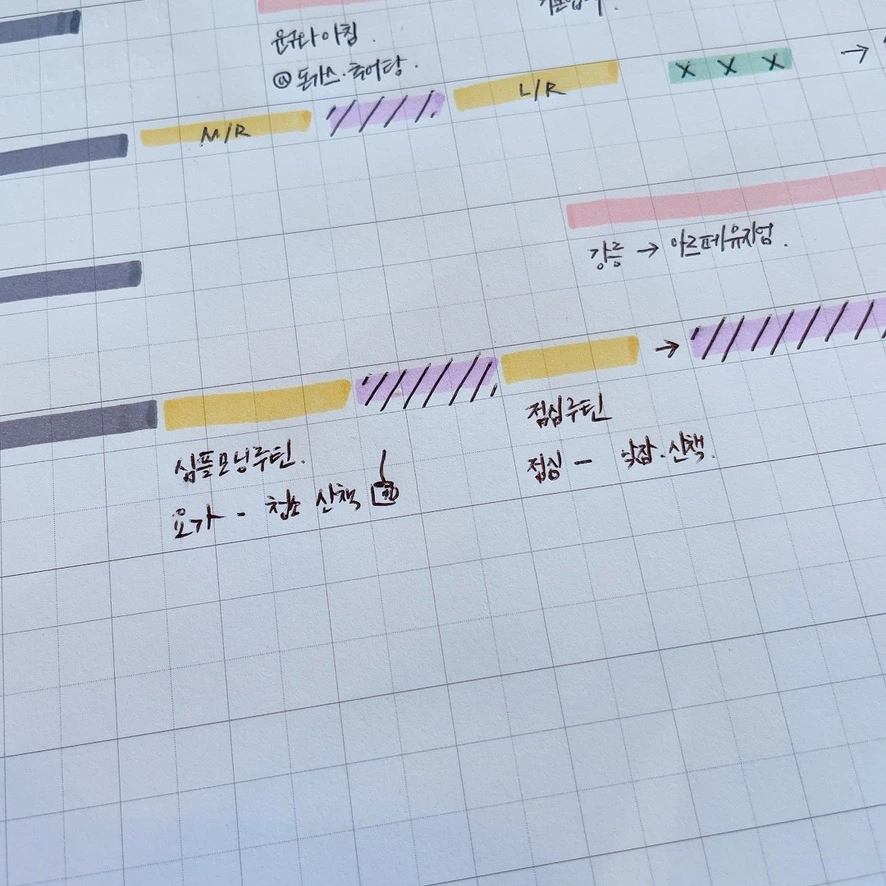 아침.
@ 돈가스·추어탕.
M/R
L/R
X X X →
강릉 → 아르떼뮤지엄.
→
심플모닝루틴.
요가 - 청소 산책
점심루틴
점심 - 낮잠·산책.